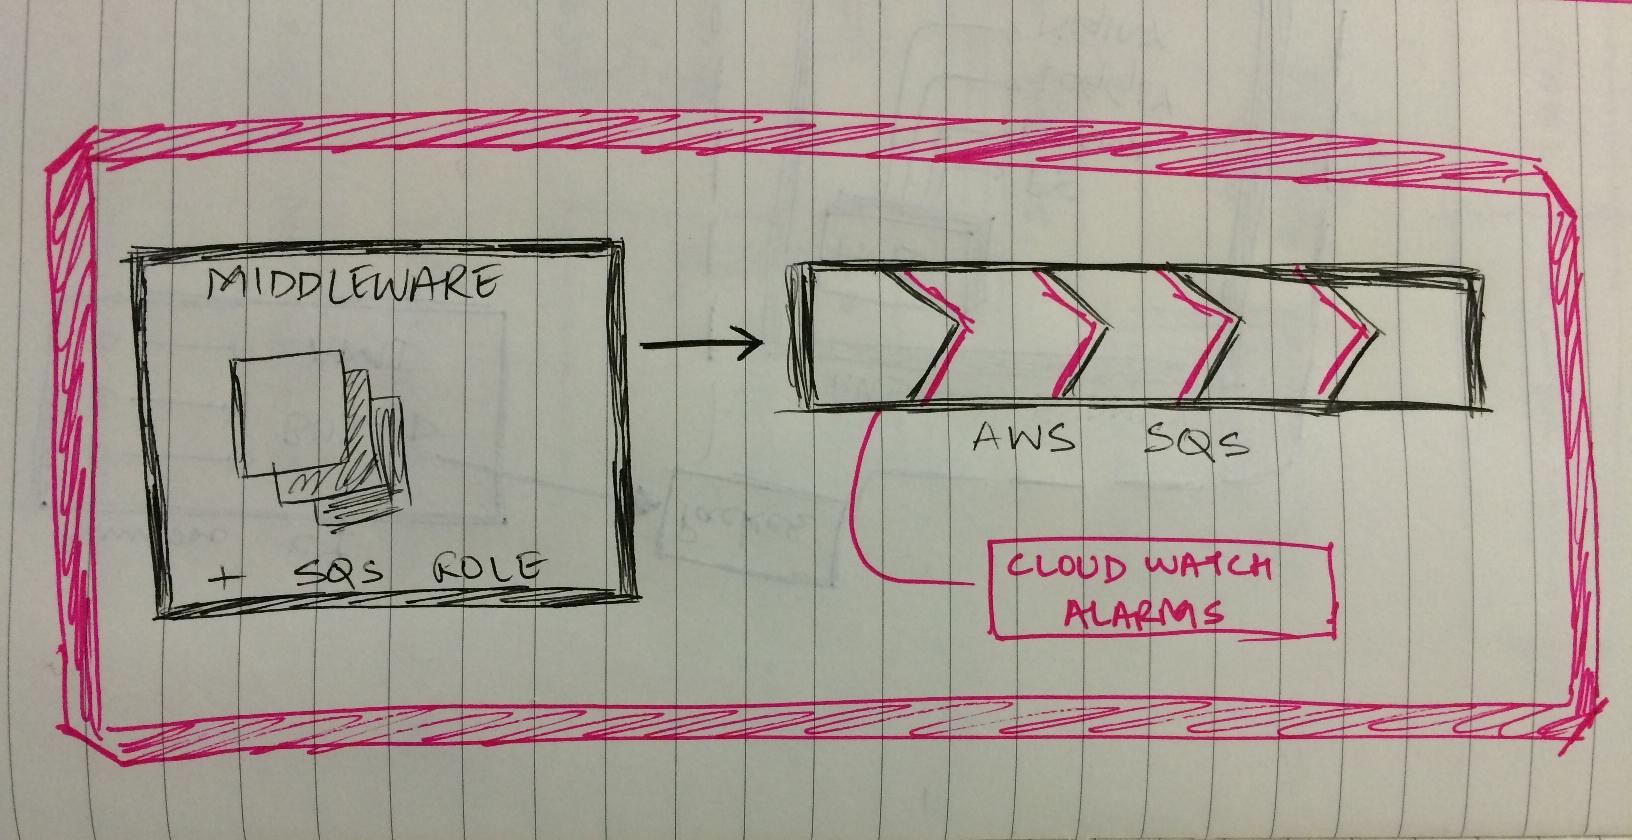 MIDDLEWARE
+ SQS ROLE
AWS SQS
CLOUD WATCH
ALARMS